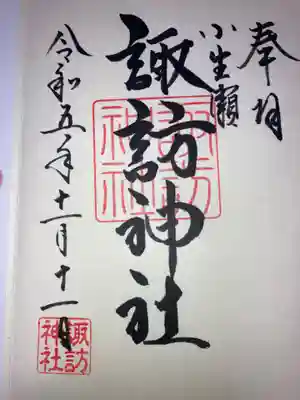 奉拝
小生瀬
諏訪神社
諏訪神社
令和五年十一月十一日
諏訪神社